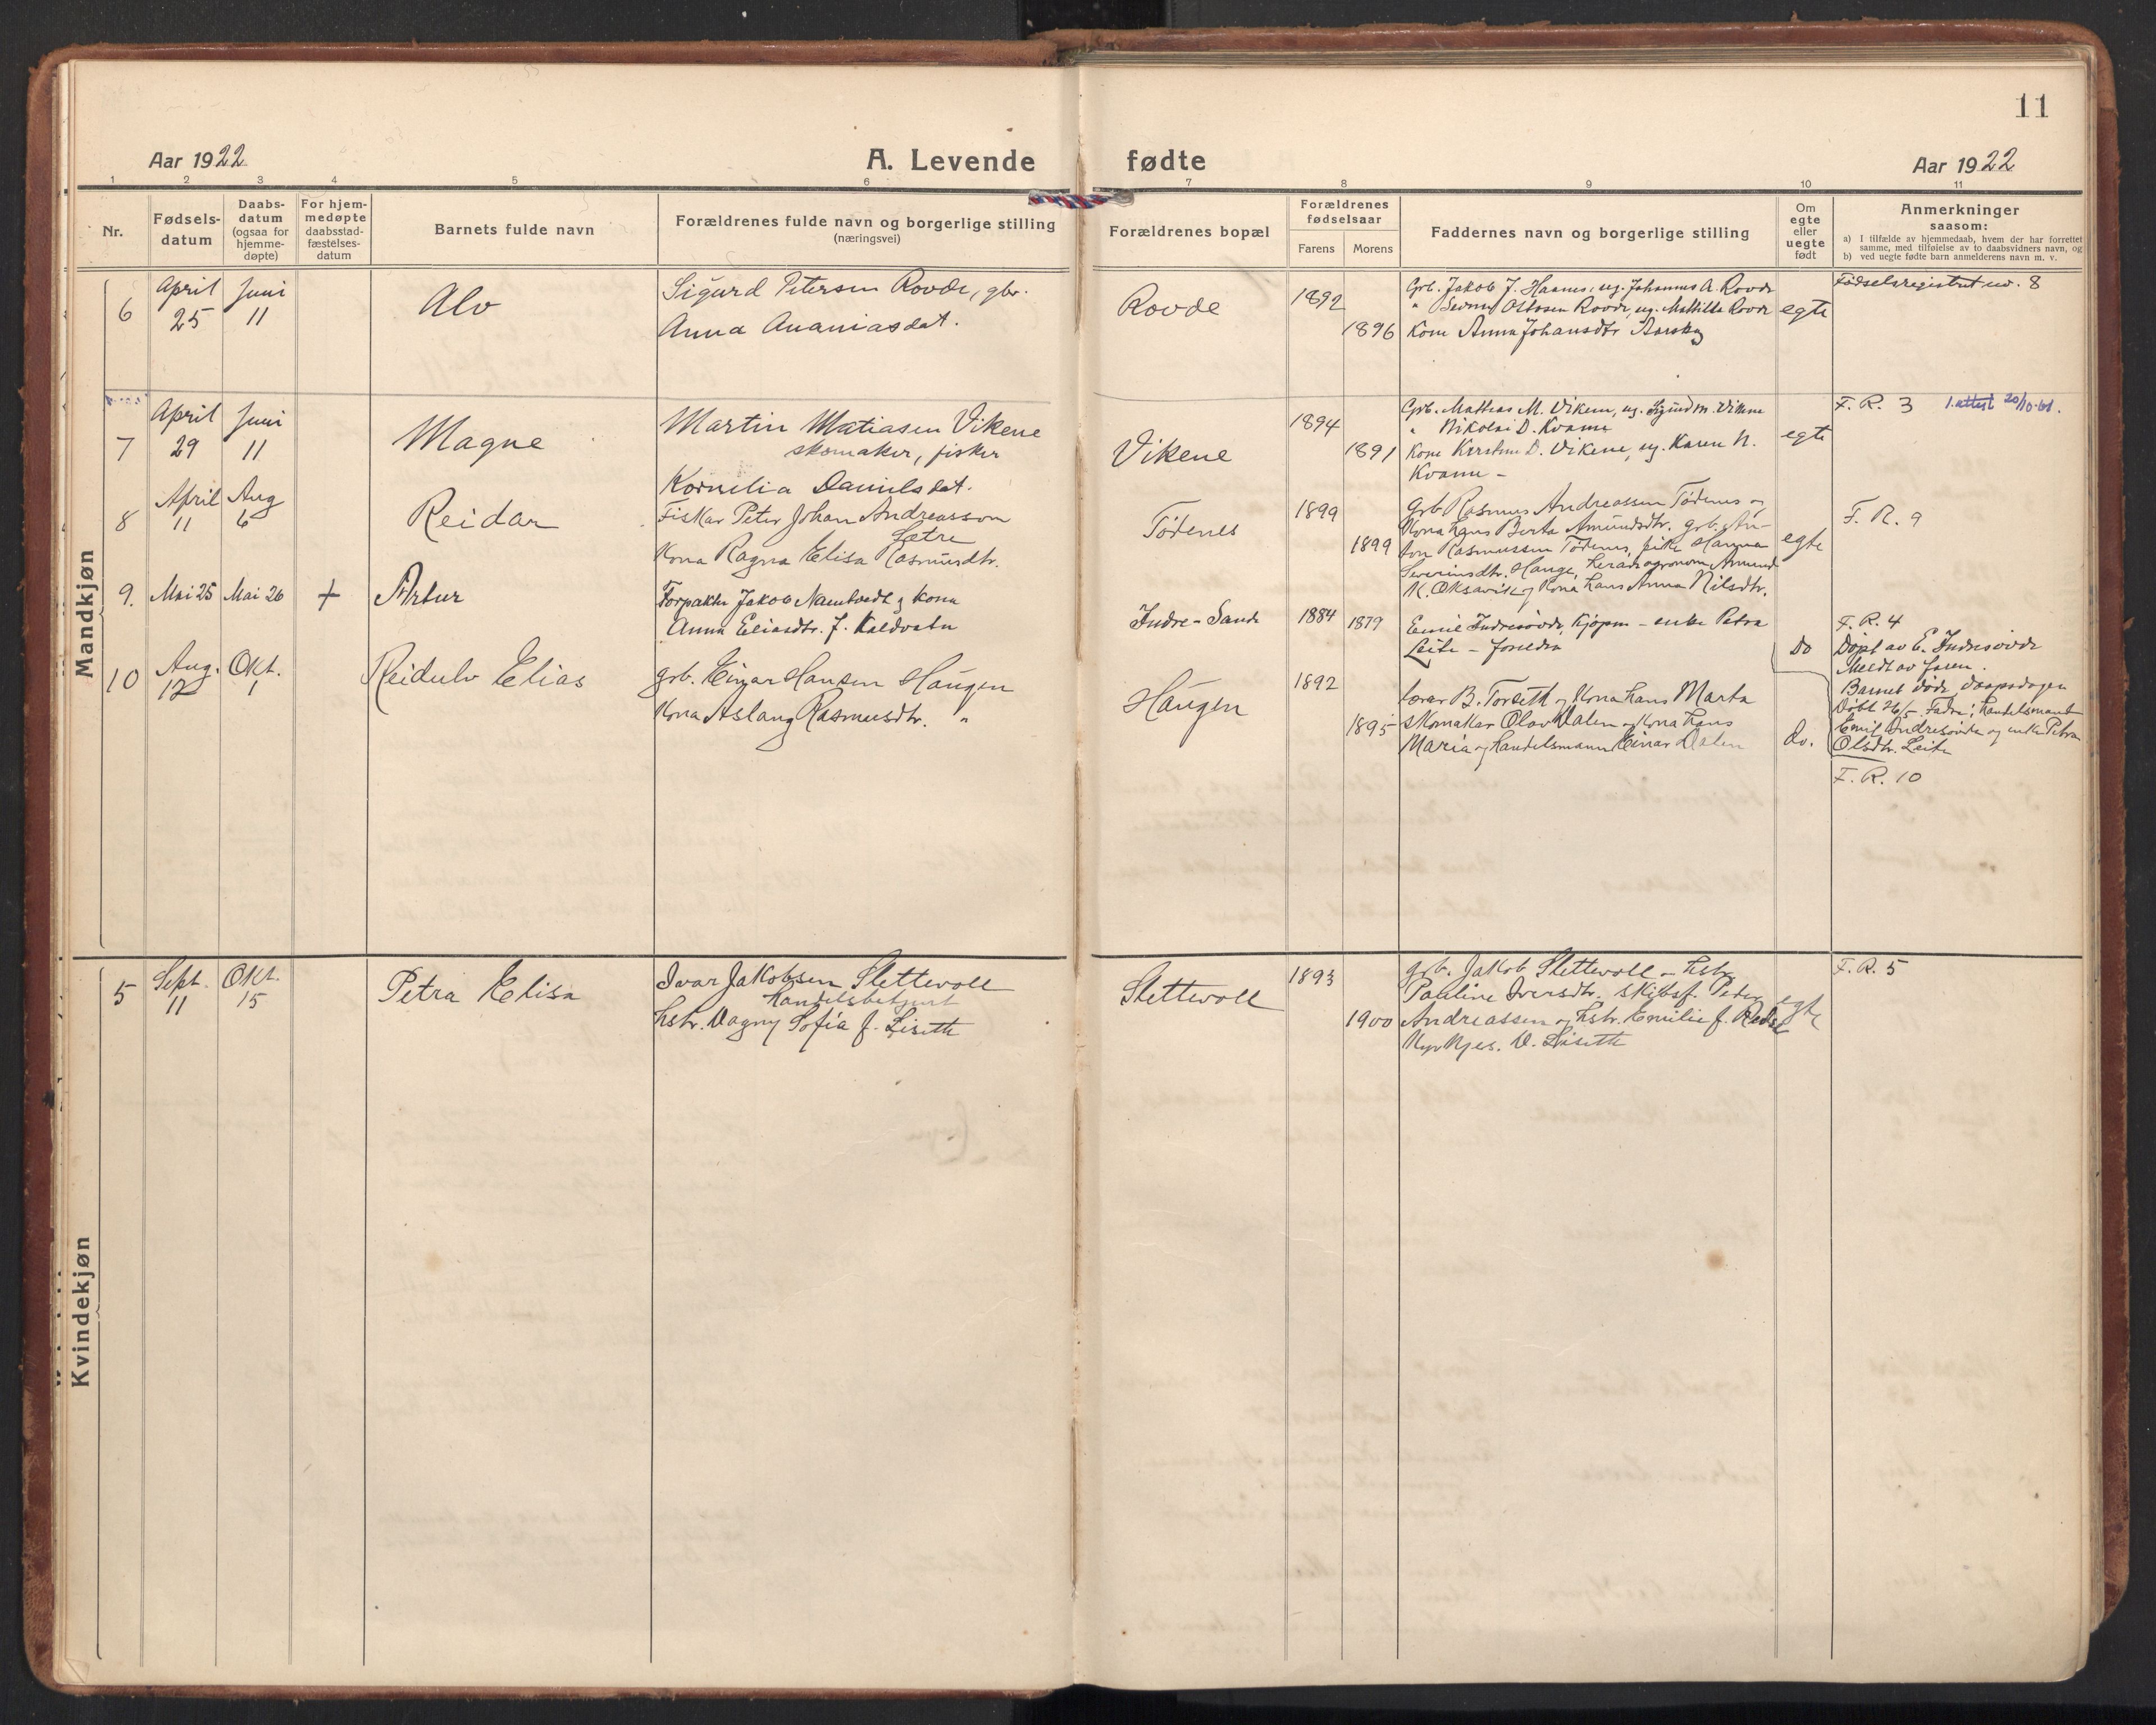 11
Aar 1922
A. Levende fødte
Aar 1922
1 2 3 4 5 6 7 8 9 10 11
Nr.
Fødsels-
datum
Daabs-
datum
(ogsaa for
hjemme-
døpte)
For hjem-
medøpte
daabsstad-
fæstelses-
datum
Barnets fulde navn
Forældrenes fulde navn og borgerlige stilling
(næringsvei)
Forældrenes bopæl
Forældrenes
fødselsaar
Farens Morens
Faddernes navn og borgerlige stilling
Om
egte
eller
uegte
født
Anmerkninger
saasom:
a) I tilfælde av hjemmedaab, hvem der har forrettet
samme, med tilføielse av to daabsvidners navn, og
b) ved uegte fødte barn anmelderens navn m. v.
Mandkjøn
6
April
25
Juni
11
Alv
Sigurd Petersen Rovde, gbr.
Anna Ananiasdat.
Rovde
1892
1896
Grb. Jakob J. Haanes, ug. Johannes A. Rovde
" Ottosen Rovde, ug. Mathilde Rovde
Kone Anna Johansdtr Aarskog
egte
Fødselsregistret no. 8
7
April
29
Juni
11
Magne
Martin Matiasen Vikene
skomaker, fisker
Kornelia Danielsdat.
Vikene
1894
1891
Grb. Mathias M. Vikene, ug. Sigurd M. Vikene
" Nikolai D. Kvamme
Kone Kirstine D. Vikene, ug. Karen N.
Kvamme -
egte
F. R. 3 1. attest 20/10-61.
8
April
11
Aug
6
Reidar
Fiskar Peter Johan Andreasson
Sætre
Kona Ragna Elisa Rasmusdtr.
Tødenes
1899
1899
Grb Rasmus Andreassen Tødenes og
Kona hans Berta Amundsdtr. grb. An-
ton Rasmussen Tødenes, pike Hanna
Severinsdtr. Hauge, heradsagronom Amund
K. Oksavik og Kona hans Anna Nilsdtr.
egte
F. R. 9
9.
Mai 25
Mai 26
+
Artur
Forpakter Jakob Namtvedt og kona
Anna Eliasdtr. f. Koldvatn
Indre-Sande
1884 1879
Emil Indresøvde, kjøpm - enke Petra
Leite - foreldra
Do
F. R. 4
Døpt av E. Indresøvde
Meldt av faren.
Barnet døde daapsdagen
Døbt 26/5. Fadre: handelsmand
Emil Indresøvde og enke Petra
Olsdtr. Leite
10
Aug.
12
Okt.
1
Reidulv Elias
grb. Einar Hansen Haugen
Kona Aslaug Rasmusdtr. "
Haugen
1892
1895
lærar B. Torseth og Kona hans Marta
skomakar Olav Dalen og Kona hans
Maria og handelsmann Einar Dalen
do.
F. R. 10
Kvindekjøn
5
Sept.
11
Okt.
15
Petra Elisa
Ivar Jakobsen Slettevoll
handelsbetjent
hstr. Dagny Sofia f. Liseth
Slettevoll
1893
1900
grb. Jakob Slettevoll - hstr
Pauline Iversdtr. skibsf. Peter
Andreassen og hstr. Emilie f.
D. Liseth
egte
F. R. 5